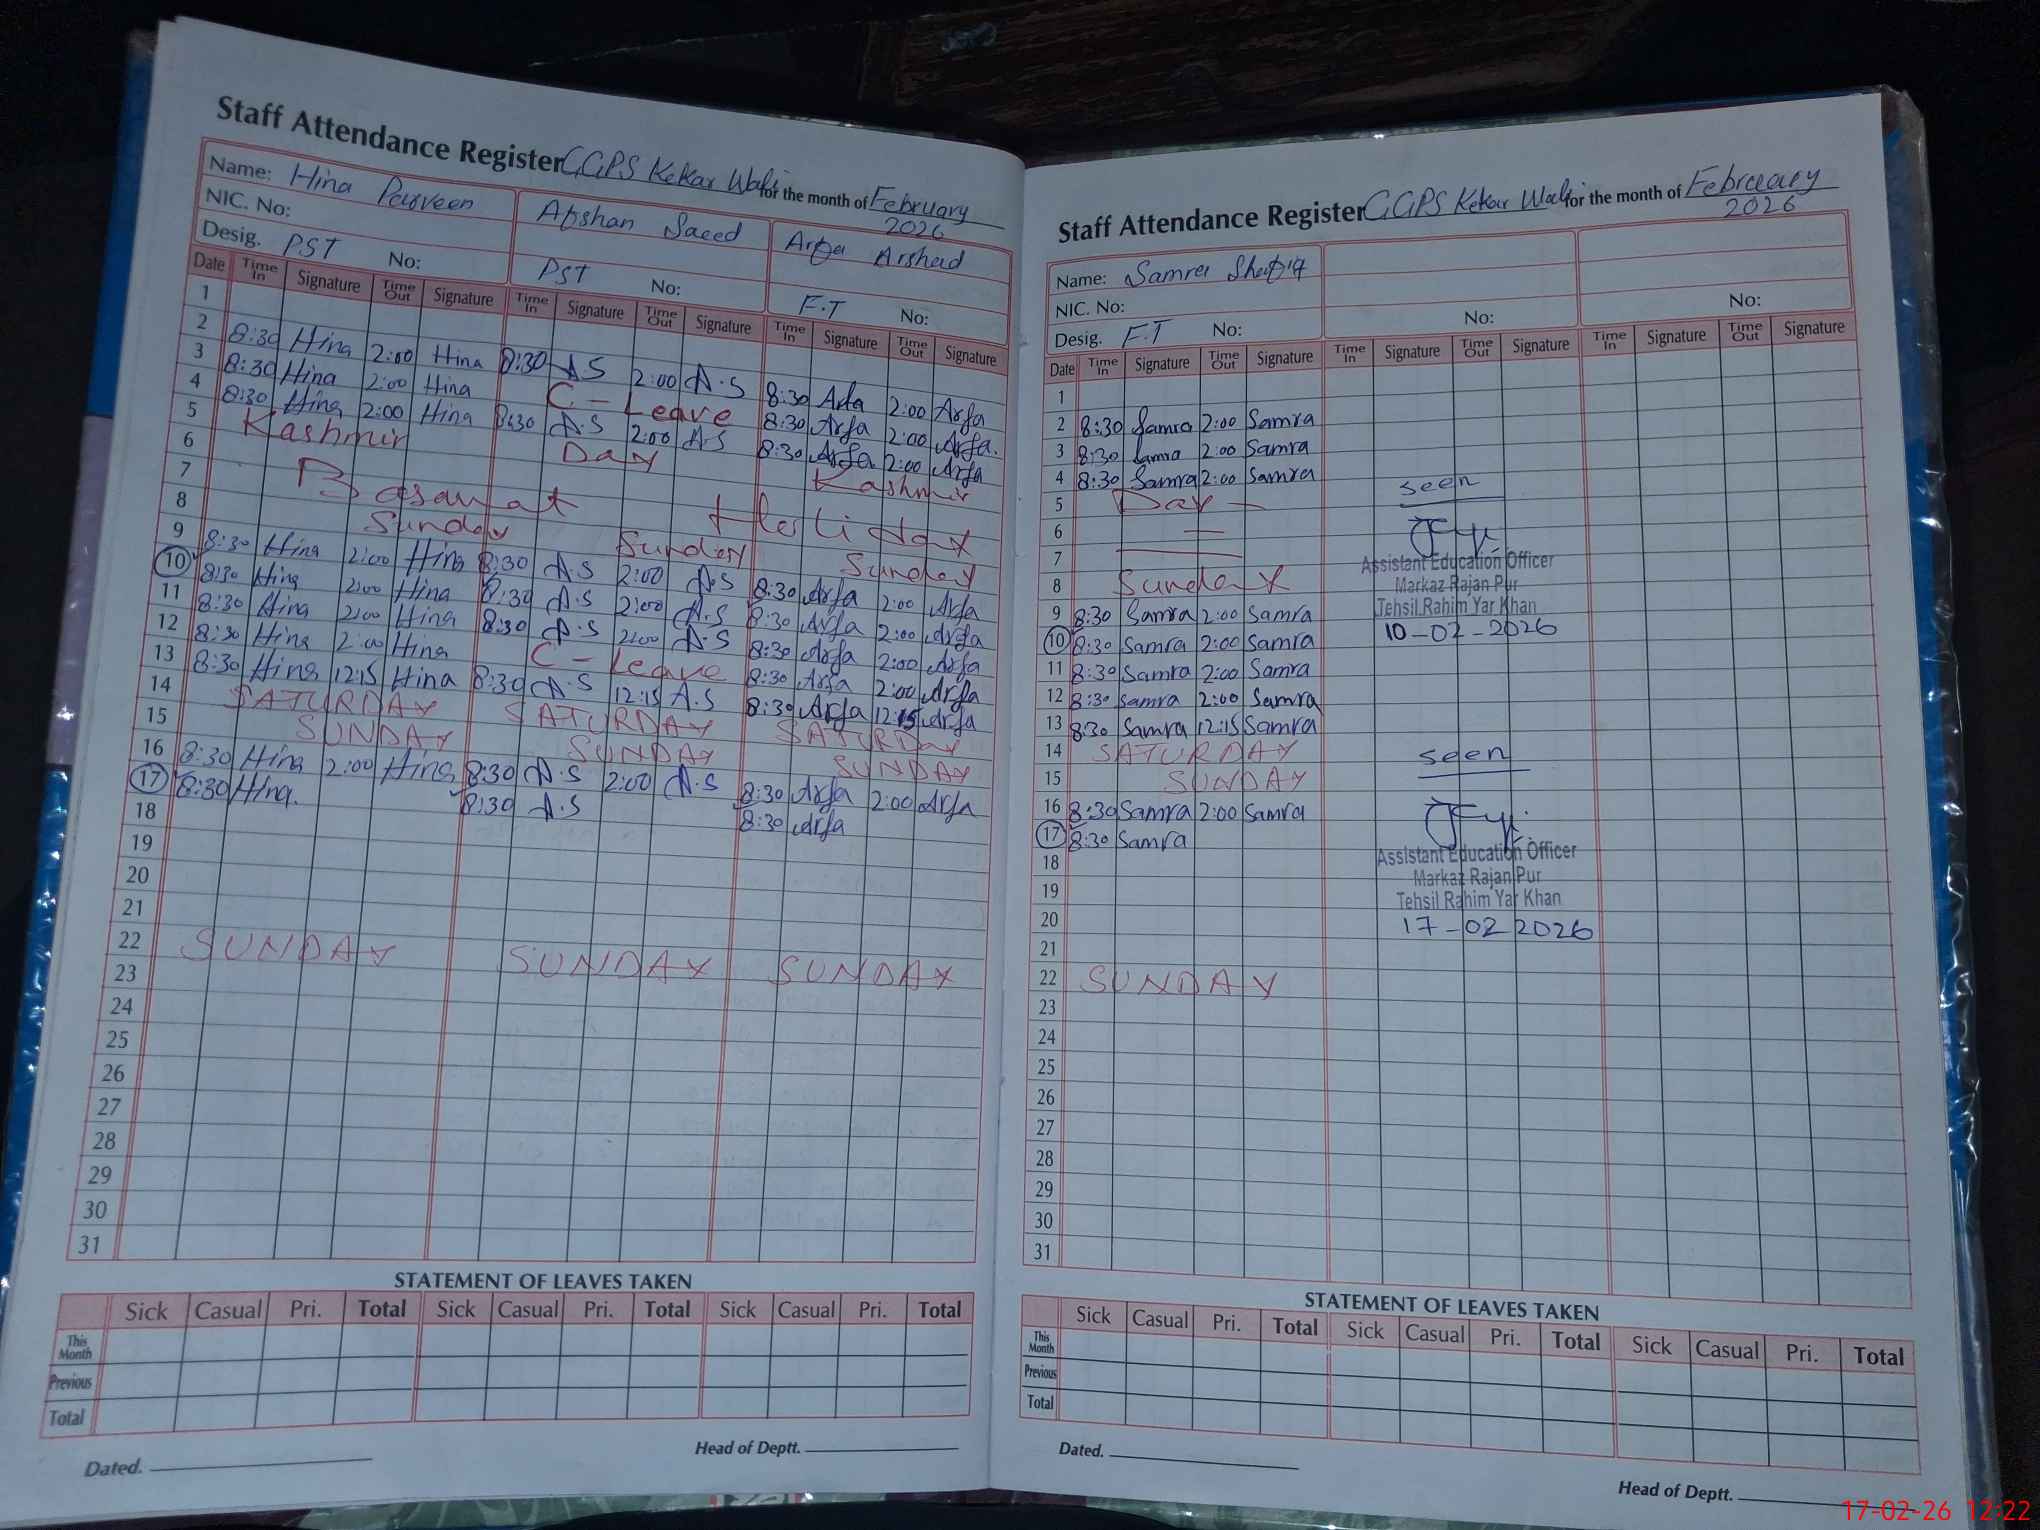 Staff Attendance Register GGPS Kekar Wali for the month of February 2026
Name: Hina Perveen Afshan Saeed Arfa Arshad
NIC. No:
Desig. PST No: PST No: F.T No:
Date Time In Signature Time Out Signature Time In Signature Time Out Signature Time In Signature Time Out Signature
1
2 8:30 Hina 2:00 Hina 8:30 A.S 2:00 A.S 8:30 Arfa 2:00 Arfa
3 8:30 Hina 2:00 Hina C-Leave 8:30 Arfa 2:00 Arfa
4 8:30 Hina 2:00 Hina 8:30 A.S 2:00 A.S 8:30 Arfa 2:00 Arfa
5 Kashmir Day Kashmir
6
7 Basant Holiday
8 Sunday Sunday Sunday
9 8:30 Hina 2:00 Hina 8:30 A.S 2:00 A.S 8:30 Arfa 2:00 Arfa
10 8:30 Hina 2:00 Hina 8:30 A.S 2:00 A.S 8:30 Arfa 2:00 Arfa
11 8:30 Hina 2:00 Hina 8:30 A.S 2:00 A.S 8:30 Arfa 2:00 Arfa
12 8:30 Hina 2:00 Hina C-Leave 8:30 Arfa 2:00 Arfa
13 8:30 Hina 12:15 Hina 8:30 A.S 12:15 A.S 8:30 Arfa 12:15 Arfa
14 SATURDAY SATURDAY SATURDAY
15 SUNDAY SUNDAY SUNDAY
16 8:30 Hina 2:00 Hina 8:30 A.S 2:00 A.S 8:30 Arfa 2:00 Arfa
17 8:30 Hina. 8:30 A.S 8:30 Arfa
18
19
20
21
22 SUNDAY SUNDAY SUNDAY
23
24
25
26
27
28
29
30
31
STATEMENT OF LEAVES TAKEN
Sick Casual Pri. Total Sick Casual Pri. Total Sick Casual Pri. Total
This Month
Previous
Total
Dated. Head of Deptt.
Staff Attendance Register GGPS Kekar Wali for the month of February 2026
Name: Samra Shafiq
NIC. No: No:
Desig. F.T No: No:
Date Time In Signature Time Out Signature Time In Signature Time Out Signature Time In Signature Time Out Signature
1
2 8:30 Samra 2:00 Samra
3 8:30 Samra 2:00 Samra
4 8:30 Samra 2:00 Samra seen
5 Day
6
7 Assistant Education Officer
8 Sunday Markaz Rajan Pur
9 8:30 Samra 2:00 Samra Tehsil Rahim Yar Khan
10 8:30 Samra 2:00 Samra 10-02-2026
11 8:30 Samra 2:00 Samra
12 8:30 Samra 2:00 Samra
13 8:30 Samra 12:15 Samra
14 SATURDAY seen
15 SUNDAY
16 8:30 Samra 2:00 Samra
17 8:30 Samra
18 Assistant Education Officer
19 Markaz Rajan Pur
Tehsil Rahim Yar Khan
20 17-02 2026
21
22 SUNDAY
23
24
25
26
27
28
29
30
31
STATEMENT OF LEAVES TAKEN
Sick Casual Pri. Total Sick Casual Pri. Total Sick Casual Pri. Total
This Month
Previous
Total
Dated. Head of Deptt.
17-02-26 12:22